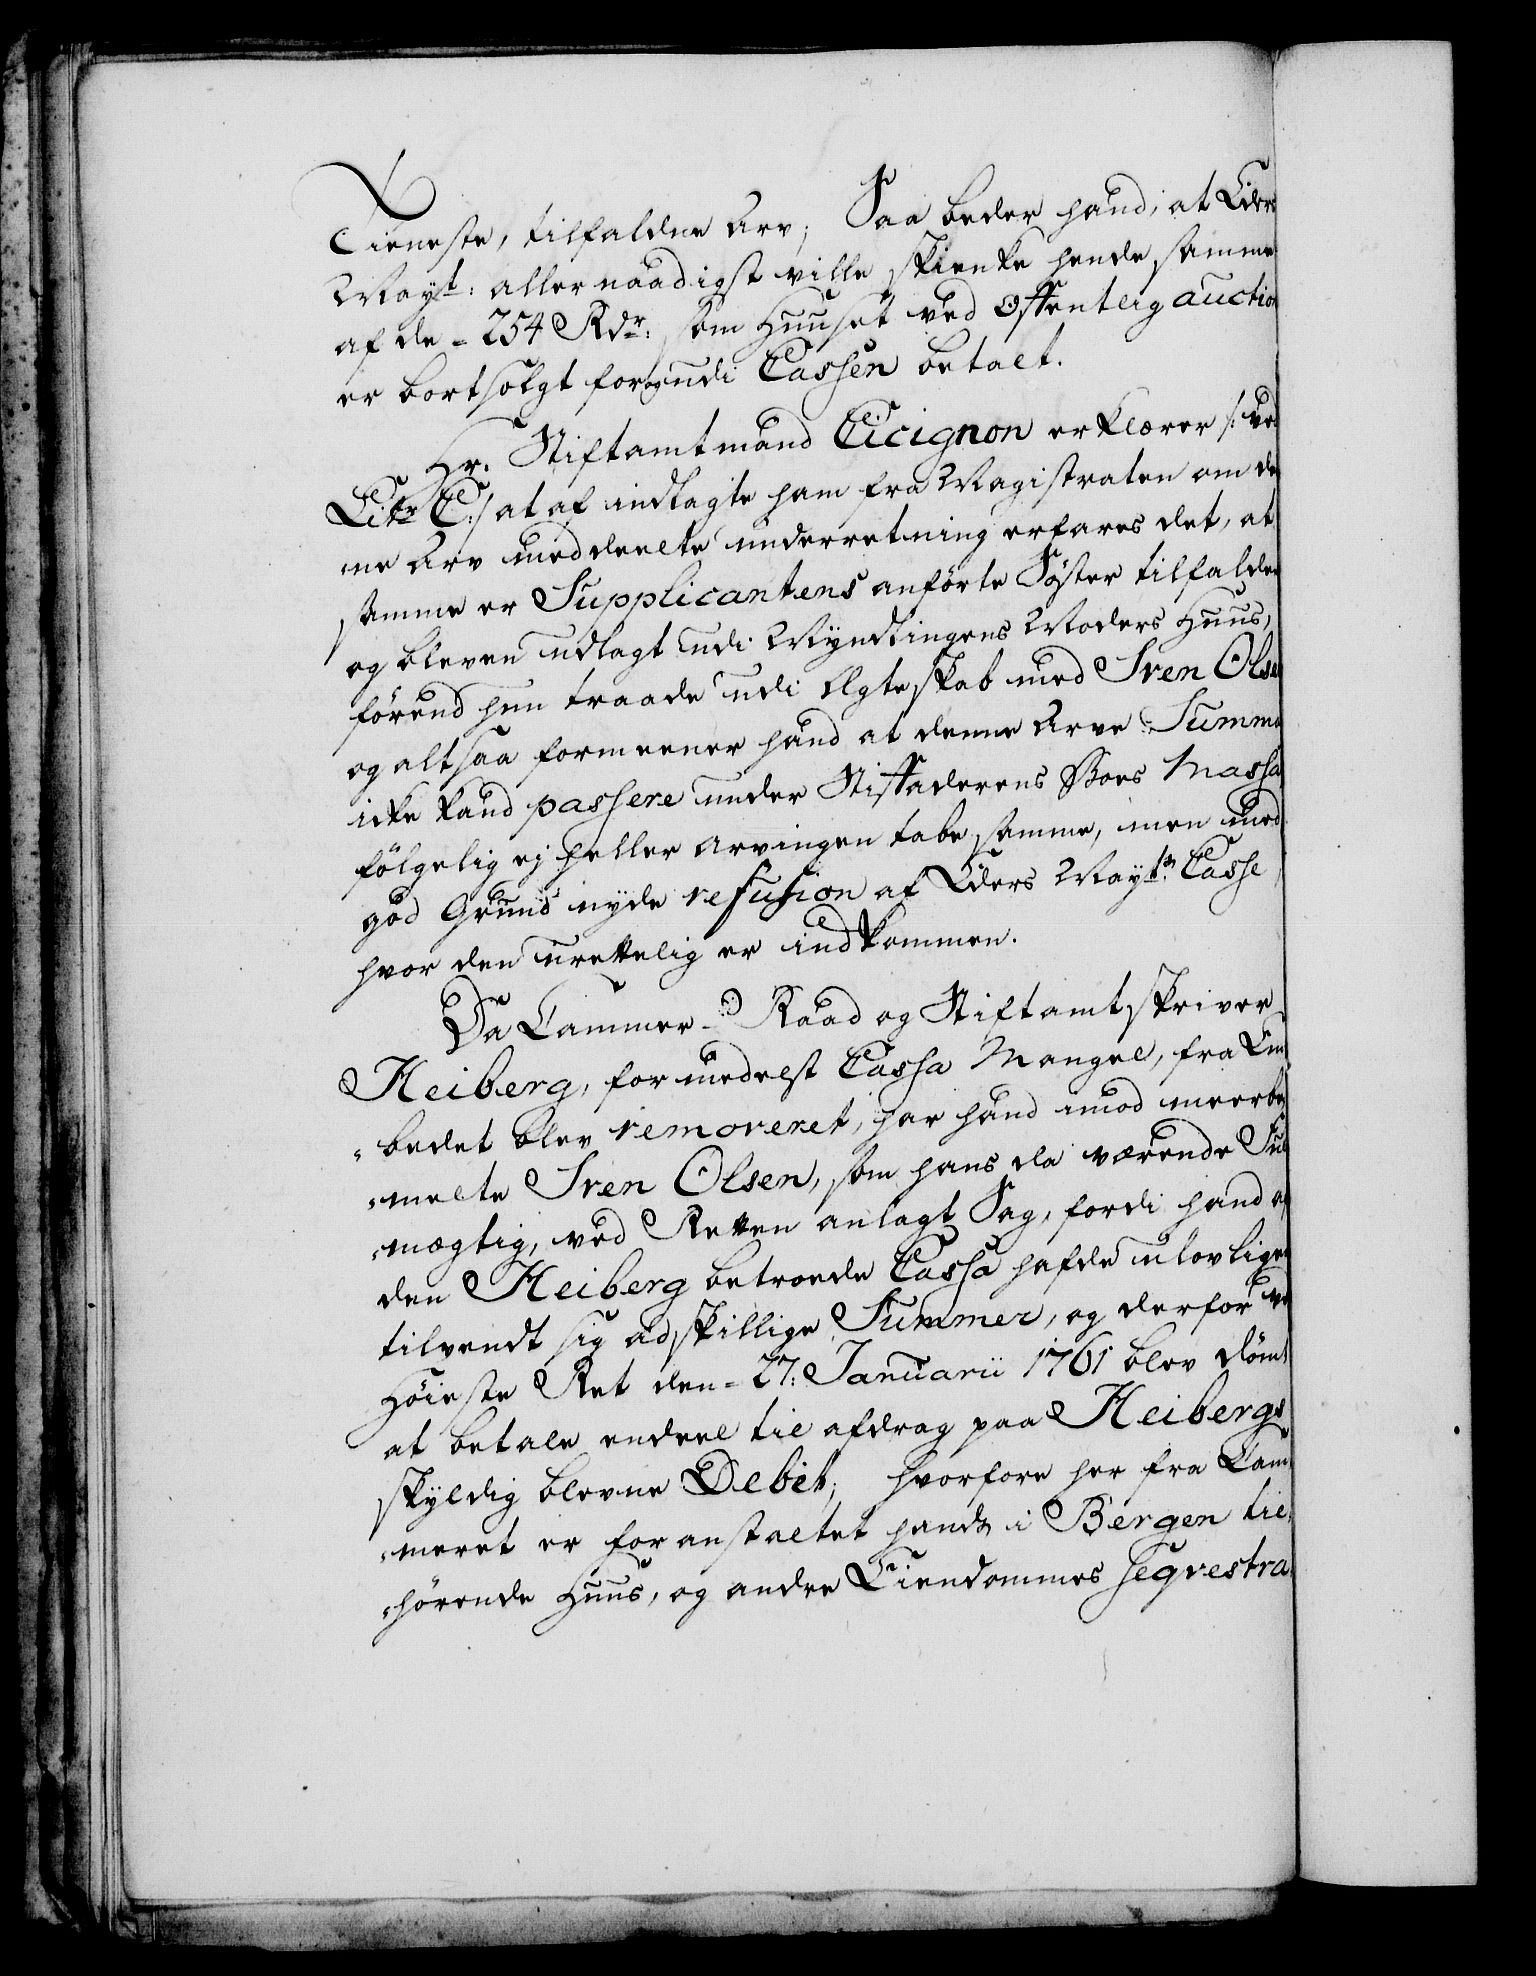 Tieneste, tilfaldne Arv; Saa beder hand, at Eders
Mayt: allernaadigst ville skienke hende samme
af de = 254 Rdr: som Huuset ved offentlig auction
er bortsolgt for, og udi Cassen betalt.
Hr. Stiftamtmand Cicignon erklærer /: ved
Litr C :/ at af indtagte ham fra Magistraten om den-
ne Arv meddeelte underretning erfares det, at
samme er Supplicantens anförte Söster tilfalden
og bleven udlagt udi Myndlingens Moders Huus,
förend hun traade udi Ægteskab med Iver Olsen
og altsaa formeener hand at denne Arve Summa
icke kand passere under Stiffaderens Boes Massa
fölgelig ej heller Arvingen tabe samme, men med
god Grund nyde refusion af Eders Mayts: Casse,
hvor den urettelig er indkommen.
Da Cammer-Raad og Stiftamtskriver
Heiberg, formedelst Cassa Mangel, fra Em-
bedet blev removeret, har hand imod meerbe-
melte Iver Olsen, som hans da værende Fuld-
mægtig, ved Retten anlagt Sag, fordi hand af
den Heiberg betroede Cassa hafde ulovligen
tilvendt sig adskillige Summer, og derfor ved
Höieste Ret den = 27: Januarii 1761 blev dömt
at betale endeel til afdrag paa Heibergs
skyldig blevne Debet; hvorfore her fra Cam-
meret er foranstaltet hands i Bergen til-
hörende Huus, og andre Eiendommes seqvestra-